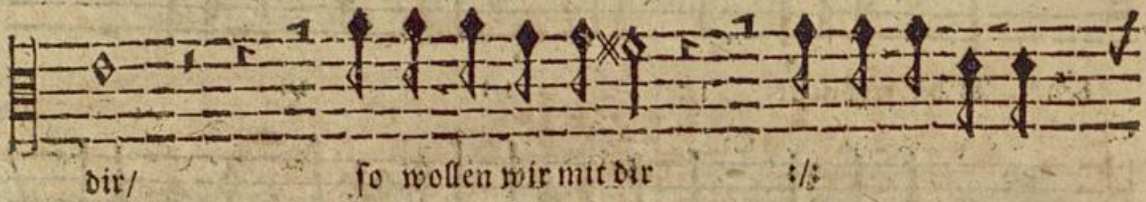 dir/ so wollen wir mit dir :/: